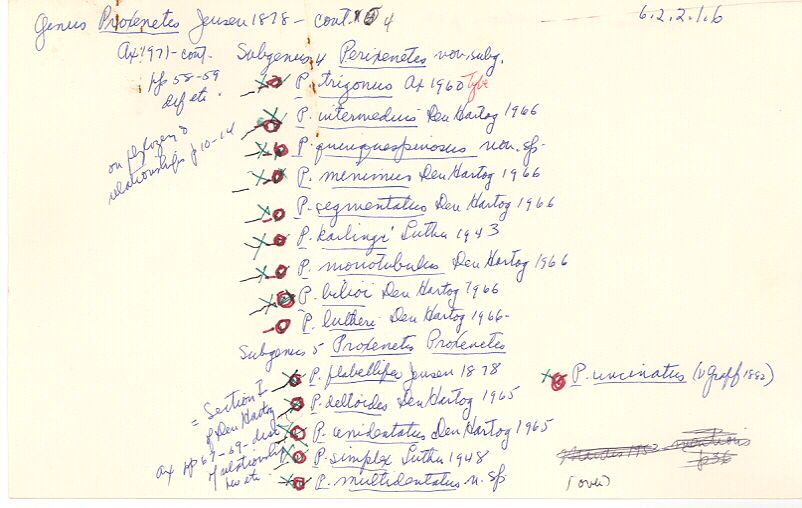 Genus Proxenetes Jensen 1878 - cont. 4
6.2.2.1.6
Ax 1971 - cont.
pp 58-59
def etc.
on phylogeny &
relationships p 10-14
Subgenus 4 Perixenetes nov. subg.
P. trigonus Ax 1960 Type
P. intermedius Den Hartog 1966
P. quinquespinosus nov. sp.
P. minimus Den Hartog 1966
P. segmentatus Den Hartog 1966
P. karlingi Luther 1943
P. monotubulus Den Hartog 1966
P. bilioi Den Hartog 1966
P. lutheri Den Hartog 1966-
Subgenus 5 Proxenetes Proxenetes
P. flabellifer Jensen 1878
P. uncinatus (v Graff 1882)
P. deltoides Den Hartog 1965
P. unidentatus Den Hartog 1965
P. simplex Luther 1948
P. multidentatus n. sp
= Section I
of Den Hartog
Ax pp 67-69 - disc
of relationship
(over)